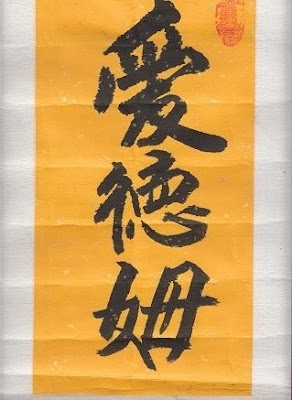 愛德姆